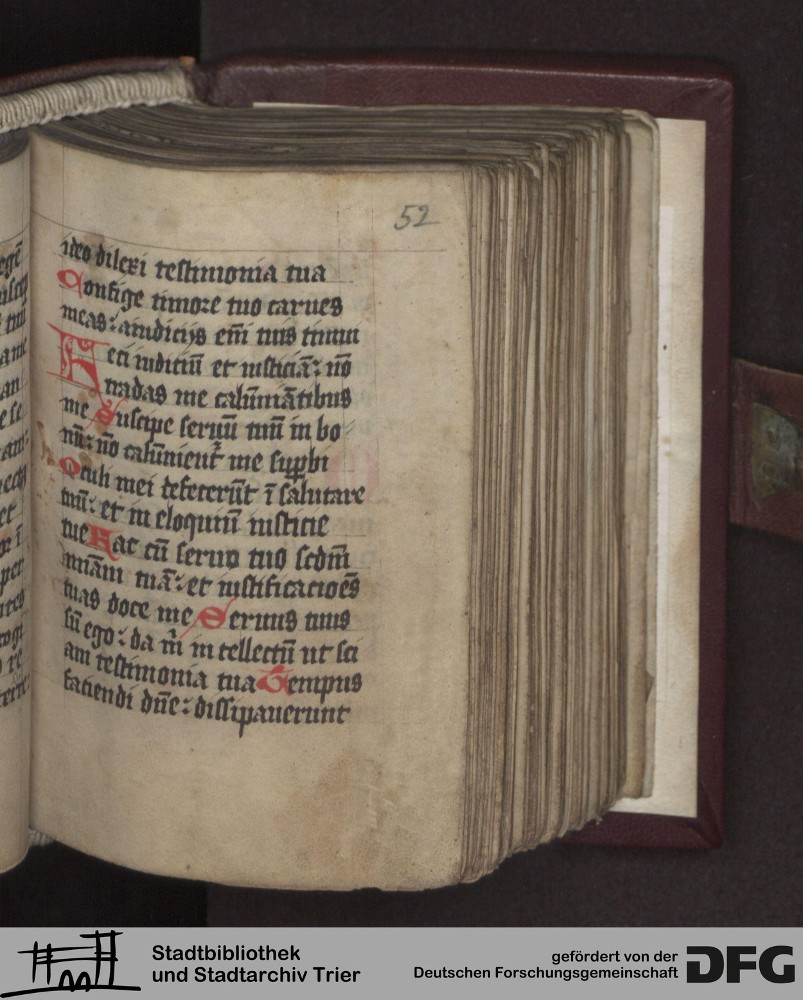 52
ideo dilexi testimonia tua
Confige timore tuo carnes
meas: a iudicijs em̅ tuis timui
Feci iudiciū et iusticiā: nō
tradas me calūniātibus
me Suscipe seruū tuū in bo
nū: nō calūnient᷑ me sup̲bi
Oculi mei defecerūt ī salutare
tuū: et in eloquiū iusticie
tue Fac cū seruo tuo scdm̅
miām tuā: et iustificacioēs
tuas doce me Seruus tuus
sū ego: da m̅ in tellectū ut sci
am testimonia tua Tempus
faciendi dn̅e: dissipauerunt
Stadtbibliothek
und Stadtarchiv Trier
gefördert von der
Deutschen Forschungsgemeinschaft
DFG